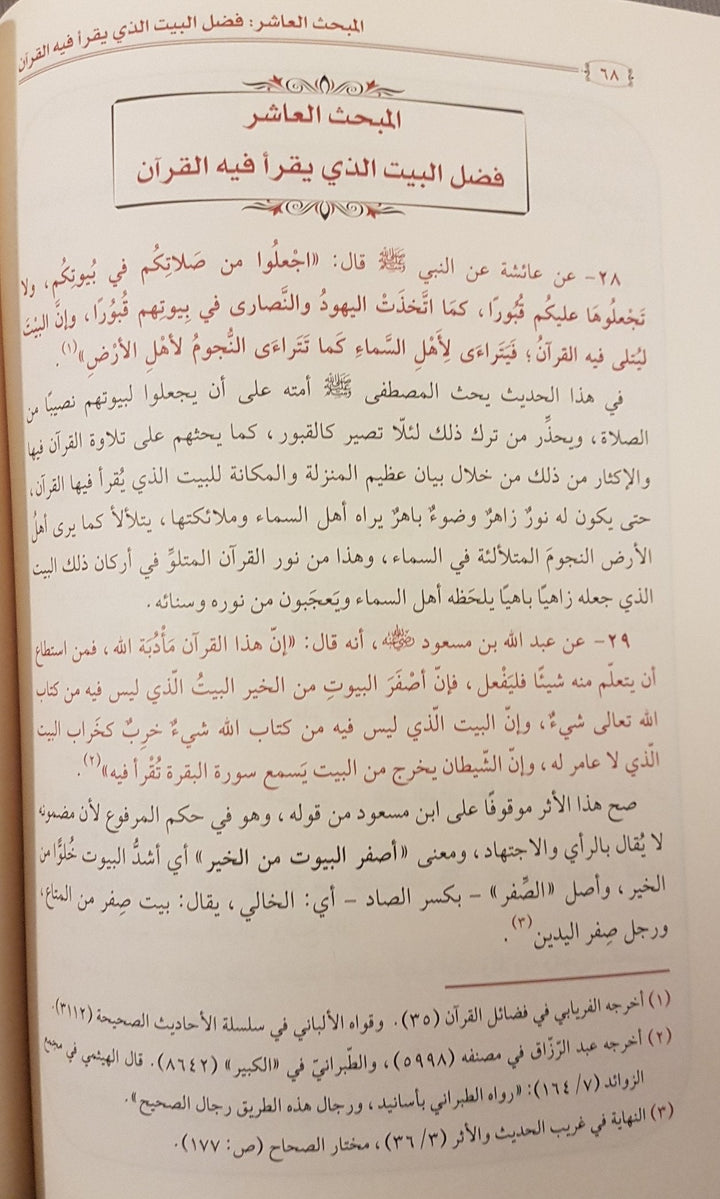 المبحث العاشر: فضل البيت الذي يقرأ فيه القرآن
٦٨
المبحث العاشر
فضل البيت الذي يقرأ فيه القرآن
٢٨- عن عائشة عن النبي ﷺ قال: «اجْعلُوا من صَلاتِكُم في بُيوتِكُم، ولا
تَجْعلُوهَا عليكُم قُبُورًا، كمَا اتَّخذَتْ اليهودُ والنَّصارى في بيوتِهم قُبُورًا، وإنَّ البيْتَ
ليُتلى فيه القرآنُ؛ فيَتراءَى لِأَهْلِ السَّماءِ كَما تَتَراءَى النُّجومُ لأهْلِ الأرْضِ»(١).
في هذا الحديث يحث المصطفى ﷺ أمته على أن يجعلوا لبيوتهم نصيبًا من
الصلاة، ويحذِّر من ترك ذلك لئلّا تصير كالقبور، كما يحثهم على تلاوة القرآن فيها
والإكثار من ذلك من خلال بيان عظيم المنزلة والمكانة للبيت الذي يُقرأ فيها القرآن،
حتى يكون له نورٌ زاهرٌ وضوءٌ باهرٌ يراه أهل السماء وملائكتها، يتلألأ كما يرى أهلُ
الأرض النجومَ المتلألئة في السماء، وهذا من نور القرآن المتلوِّ في أركان ذلك البيت
الذي جعله زاهيًا باهيًا يلحَظه أهل السماء ويَعجَبون من نوره وسنائه.
٢٩- عن عبد الله بن مسعود رضي الله عنه، أنه قال: «إنّ هذا القرآن مَأْدُبَة الله، فمن استطاع
أن يتعلّم منه شيئًا فليَفْعل، فإنّ أصْفَرَ البيوتِ من الخير البيتُ الّذي ليس فيه من كتاب
الله تعالى شيءٌ، وإنّ البيت الّذي ليس فيه من كتاب الله شيءٌ خرِبٌ كخَراب البيت
الّذي لا عامر له، وإنّ الشّيطان يخرج من البيت يَسمع سورة البقرة تُقْرأ فيه»(٢).
صح هذا الأثر موقوفًا على ابن مسعود من قوله، وهو في حكم المرفوع لأن مضمونه
لا يُقال بالرأي والاجتهاد، ومعنى «أصفر البيوت من الخير» أي أشدُّ البيوت خُلوًّا من
الخير، وأصل «الصِّفر» – بكسر الصاد – أي: الخالي، يقال: بيت صِفر من المتاع،
ورجل صِفر اليدين(٣).
(١) أخرجه الفريابي في فضائل القرآن (٣٥). وقواه الألباني في سلسلة الأحاديث الصحيحة (٣١١٢).
(٢) أخرجه عبد الرّزّاق في مصنفه (٥٩٩٨)، والطّبرانيّ في «الكبير» (٨٦٤٢). قال الهيثمي في مجمع
الزوائد (٧/ ١٦٤): «رواه الطبراني بأسانيد، ورجال هذه الطريق رجال الصحيح».
(٣) النهاية في غريب الحديث والأثر (٣/ ٣٦)، مختار الصحاح (ص: ١٧٧).